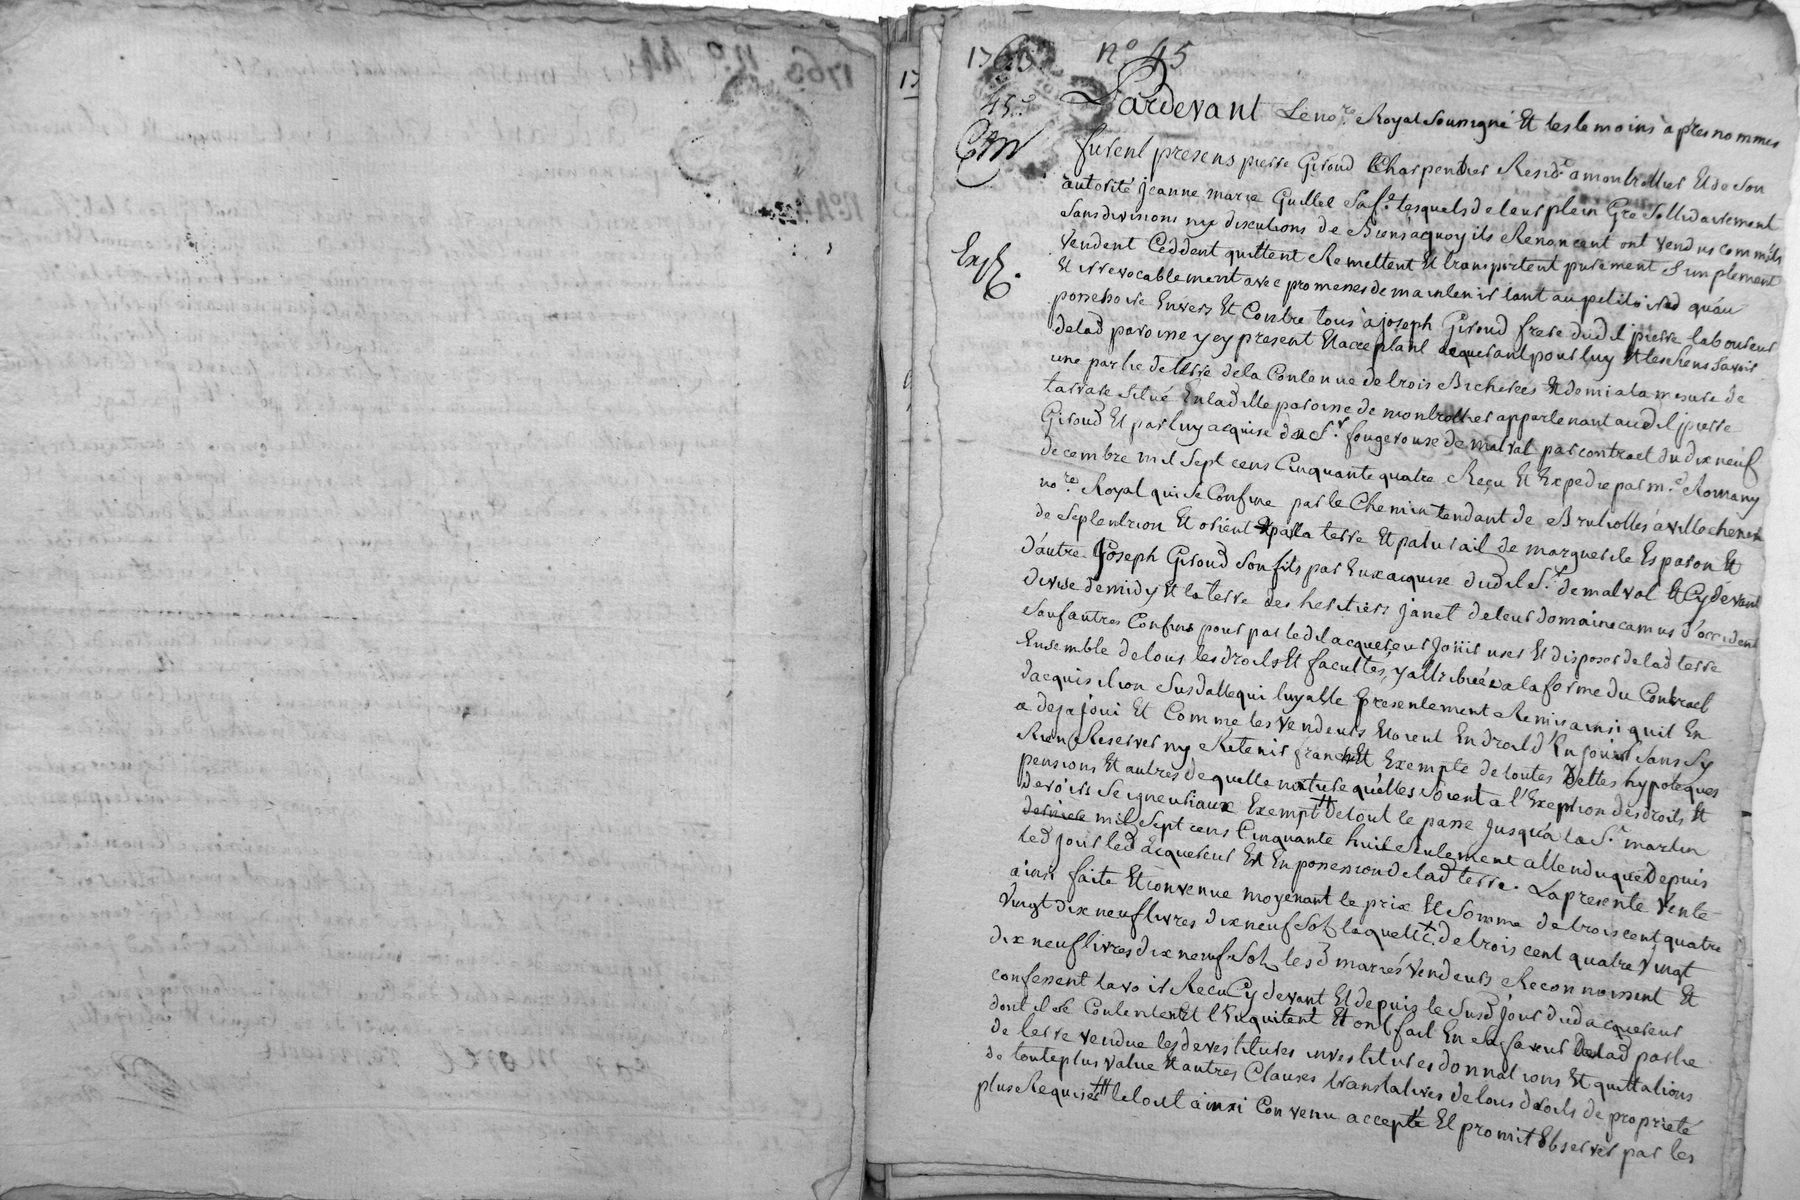 1760 nº 45
45e
Pardevant Le no.re Royal Soussigné Et les temoins apres nommes
furent presens pierre Giroud Charpentier Resid.t a montrottier Et de Son
autorité jeanne marie Guillet Sa f.e lesquels de leur plein Gré Sollidairement
Sans divisions ny discutions de Biens aquoy ils Renoncent ont vendu comm'ils
Vendent Ceddent quittent Remettent Et transportent purement Simplement
Et irrevocablement avec promesses de maintenir tant au petitoire qu'au
Exp.
possessoire Envers Et Contre tous a joseph Giroud frere dud.t pierre laboureur
de lad paroisse y cy present Et acceptant acquerant pour luy Et les siens Savoir
une partie de terre de la Contenue de trois Bicherées Et demi a la mesure de
tarrare Situé En laditte paroisse de montrottier appartenant aud.t pierre
Giroud Et par luy acquise du S.r fougerouse de malval par contract du dix neuf
decembre mil Sept cens Cinquante quatre Reçu Et Expedié par m.e Romany
no.re Royal qui Se Confine par le Chemin tendant de Brullolles a villechenes
de Septentrion Et orient par la terre Et paturail de marguerite Esparon Et
d'autre Joseph Giroud Son fils par Eux acquise dudit S.r de malval Et Cy devant
divisé de midy Et la terre des heritiers janet de leur domaine camus d'occident
Sauf autres Confins pour par ledit acquereur Jouir user Et disposer de lad terre
Ensemble de tous les droits Et facultés y attribuées a la forme du Contract
dacquisition Susdatte qui luy a Eté presentement Remis ainsi quil En
a deja joui Et Comme les vendeurs Etoient En droit d'En jouir Sans Sy
Rien Reserver ny Retenir franche Et Exempte de toutes Dettes hypoteques
pensions Et autres de quelle nature quelles Soient a l'Exeption des droits Et
devoirs Seigneuriaux Exempt Et de tout le passé jusqu'a la S.t martin
derniere mil Sept cens Cinquante huit Seulement attendu que Depuis
led jour led acquereur Est En possession de lad terre. La presente Vente
ainsi faite Et convenue moyenant le prix Et Somme de trois cent quatre
Vingt dix neuf livres dix neuf Sols laquelle de trois cent quatre Vingt
dix neuf livres dix neuf Sols les d mariés vendeurs Reconnoissent Et
confessent l'avoir Recu Cy devant Et depuis le Susd jour dud acquereur
dont il Se Contentent Et l'En quitent Et ont fait En sa faveur De lad partie
de terre vendue les devestitures investitures donnations Et quittations
de toute plus value Et autres Clauses translatives de tous droits de proprieté
plus Requises le tout ainsi Convenu accepté Et promit observer par les